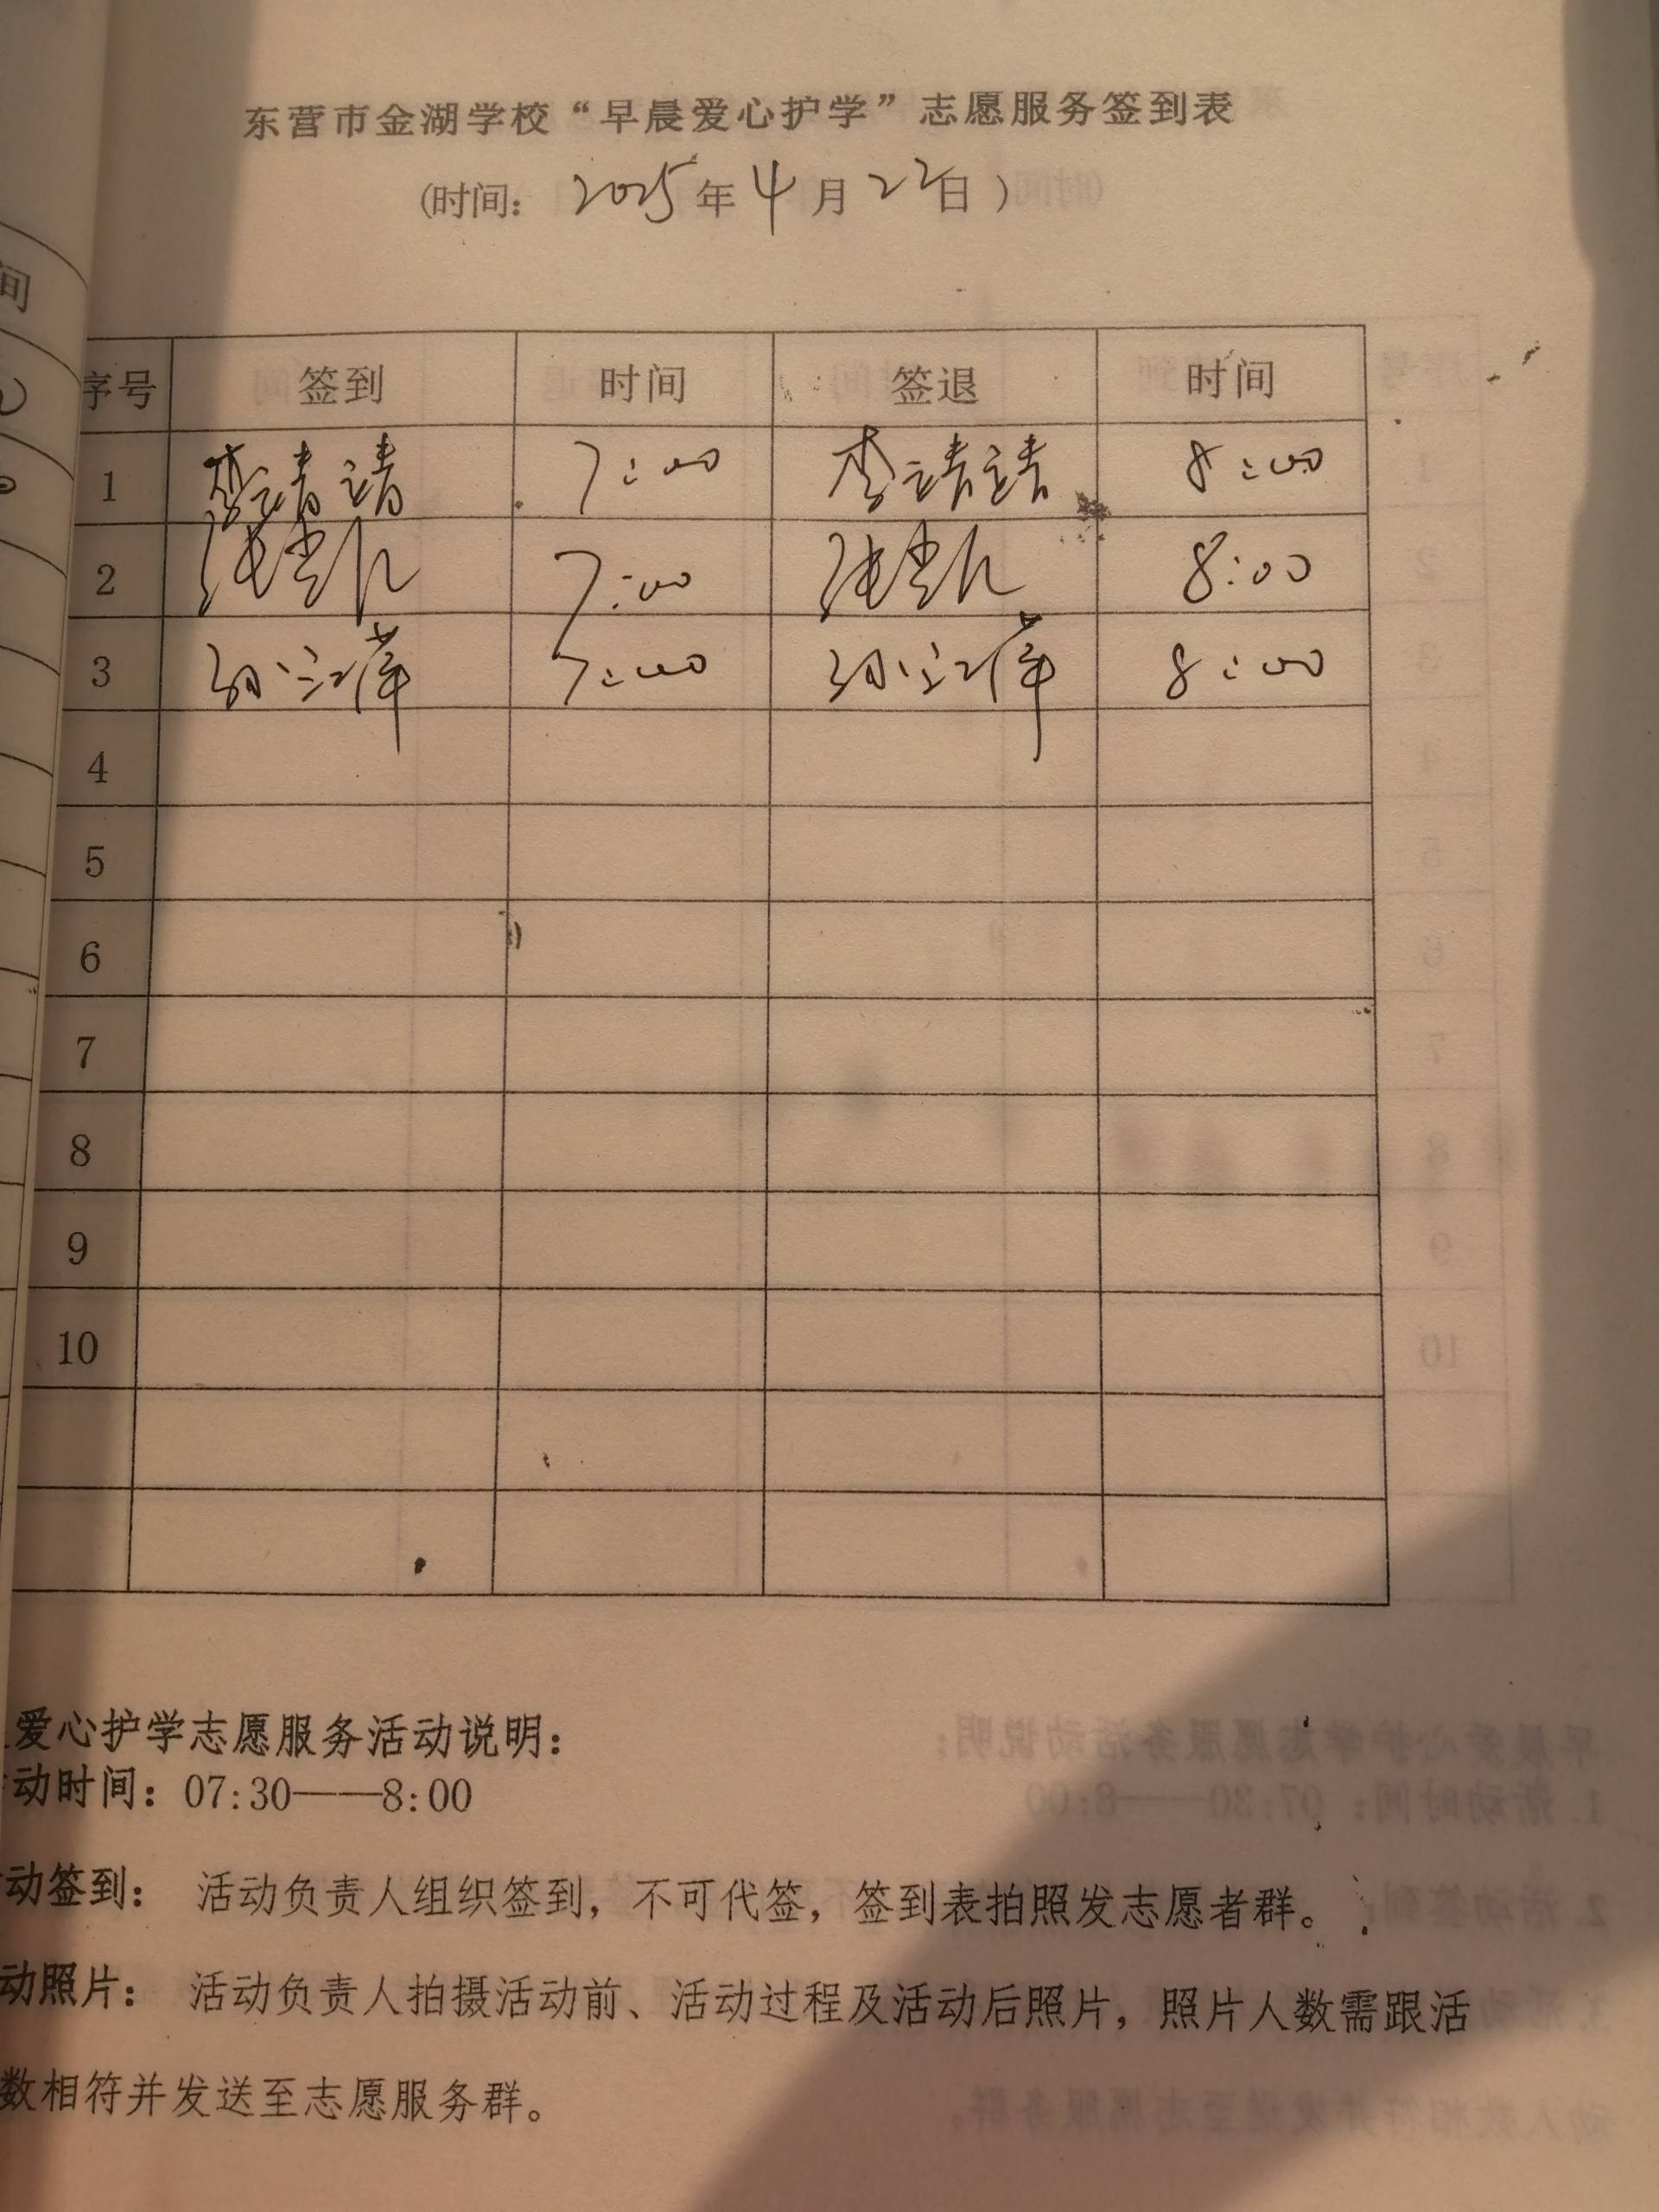 东营市金湖学校“早晨爱心护学”志愿服务签到表
(时间: 2025年4月22日)
间
序号 签到 时间 签退 时间
1 李靖靖 7:00 李靖靖 8:00
2 7:00 8:00
3 7:00 8:00
4
5
6
7
8
9
10
爱心护学志愿服务活动说明:
动时间: 07:30——8:00
动签到: 活动负责人组织签到, 不可代签, 签到表拍照发志愿者群。
动照片: 活动负责人拍摄活动前、活动过程及活动后照片, 照片人数需跟活
数相符并发送至志愿服务群。